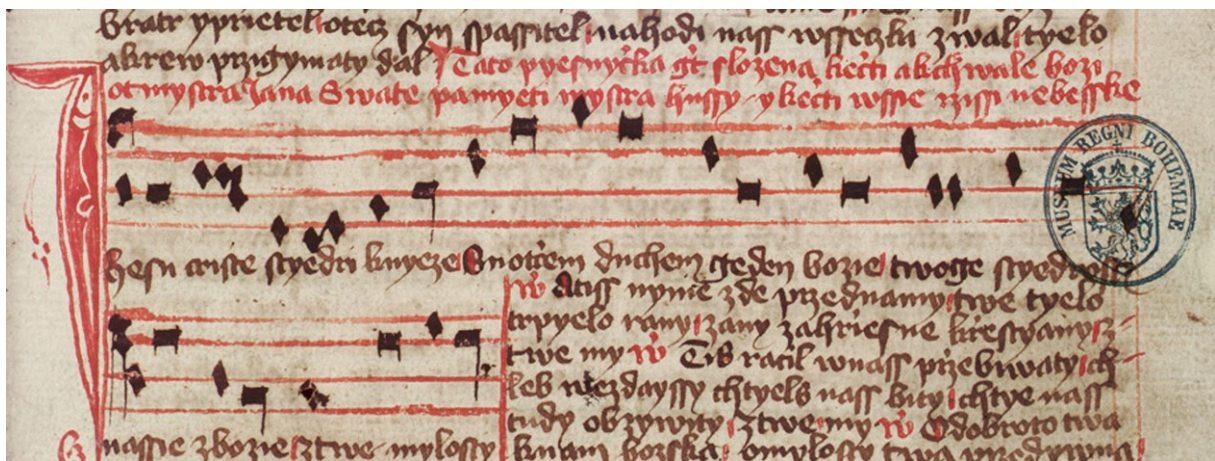 bratr yprietel otecz syn spassitel nahodi nass wsseczki zwal tyelo
akrew przigymaty dal Tato pyesnyczka gt slozena kecti akchwale bozi
ot mystra Jana Swate pamyeti mystra hussy y kecti wssie rzissi nebesske
hesu criste sscyedri knyeze S otcem duchem geden bozie twoge sscyedrost
MUSEUM REGNI BOHEMIAE
nassie zbozie z twe mylosty
W Atiss nynie zde przednamy twe tyelo
trpyelo rany zany zahriesne krestyany z
twe my W Tis racil wnass przebiwaty ch
leb niezdayssy chtyels nass bity chtye nass
tudy obzywity z twe my W O dobroto twa
knam bozska